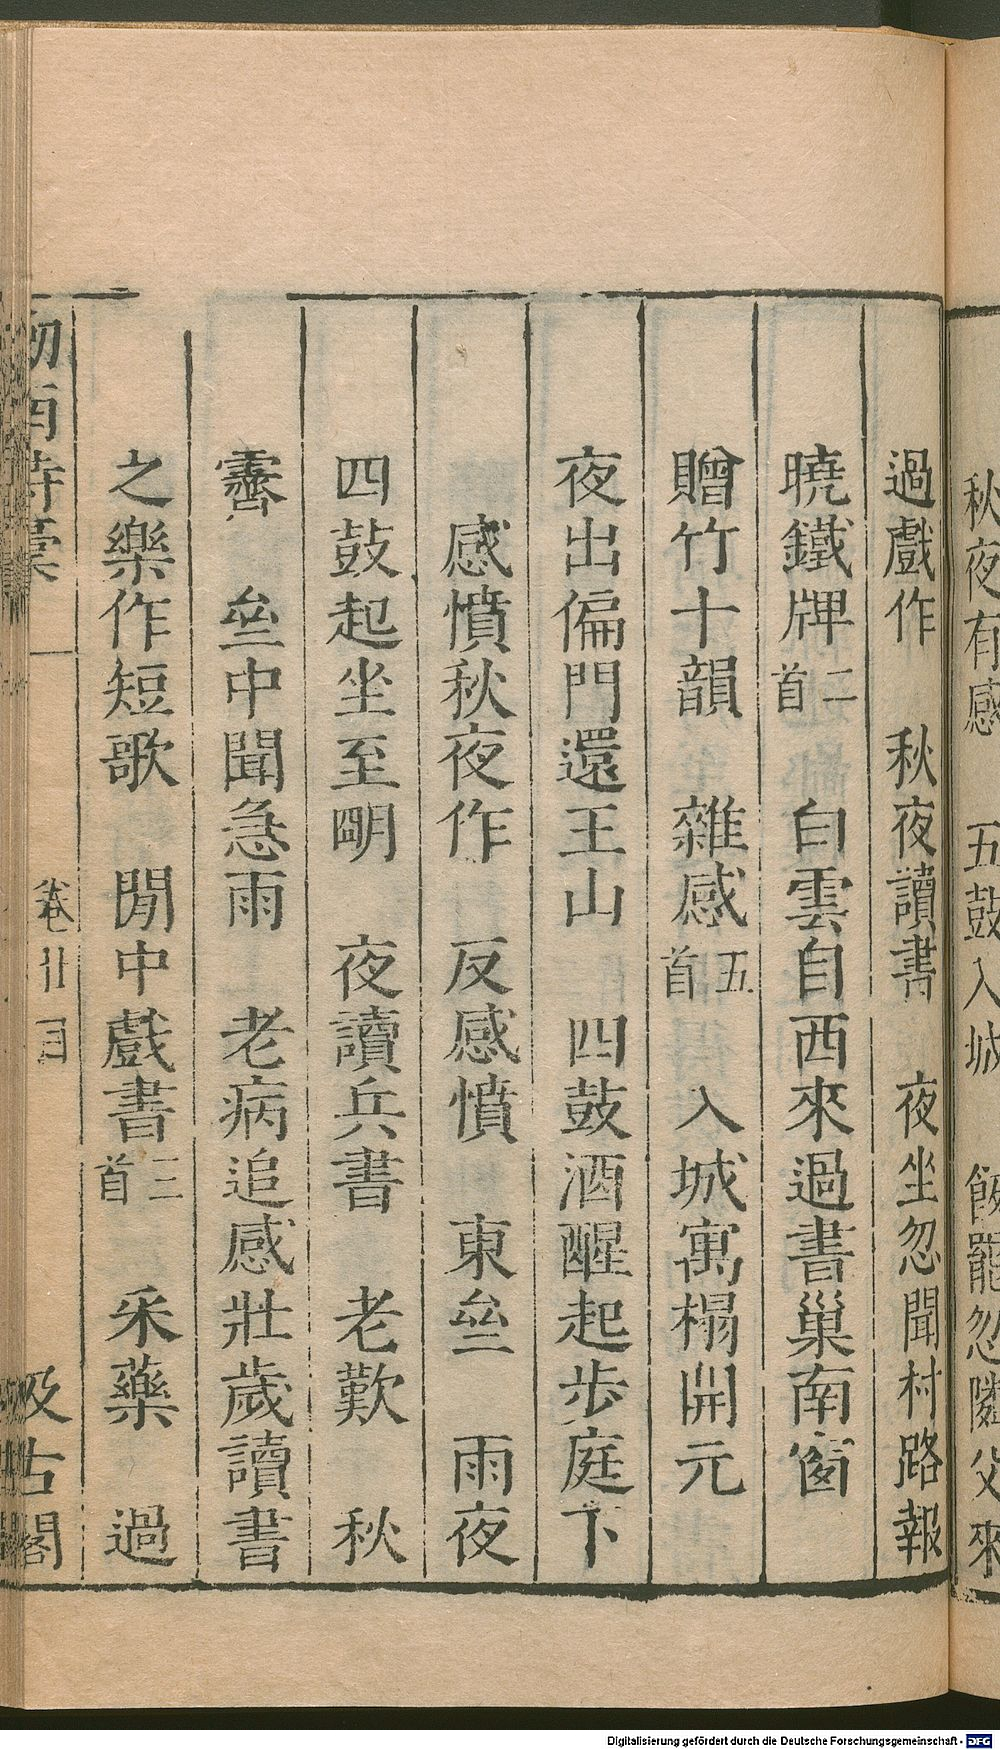 秋夜有感　五鼓入城　飯罷忽隣父來
過戲作　秋夜讀書　夜坐忽聞村路報
曉鐵牌二首　白雲自西來過書巢南窗
贈竹十韻　雜感五首　入城寓榻開元
夜出偏門還王山　四鼓酒醒起步庭下
感憤秋夜作　反感憤　東壘　雨夜
四鼓起坐至明　夜讀兵書　老歎　秋
霽　壘中聞急雨　老病追感壯歲讀書
之樂作短歌　閒中戲書三首　采藥　過
劒南詩稾　卷廿目　汲古閣
Digitalisierung gefördert durch die Deutsche Forschungsgemeinschaft - DFG